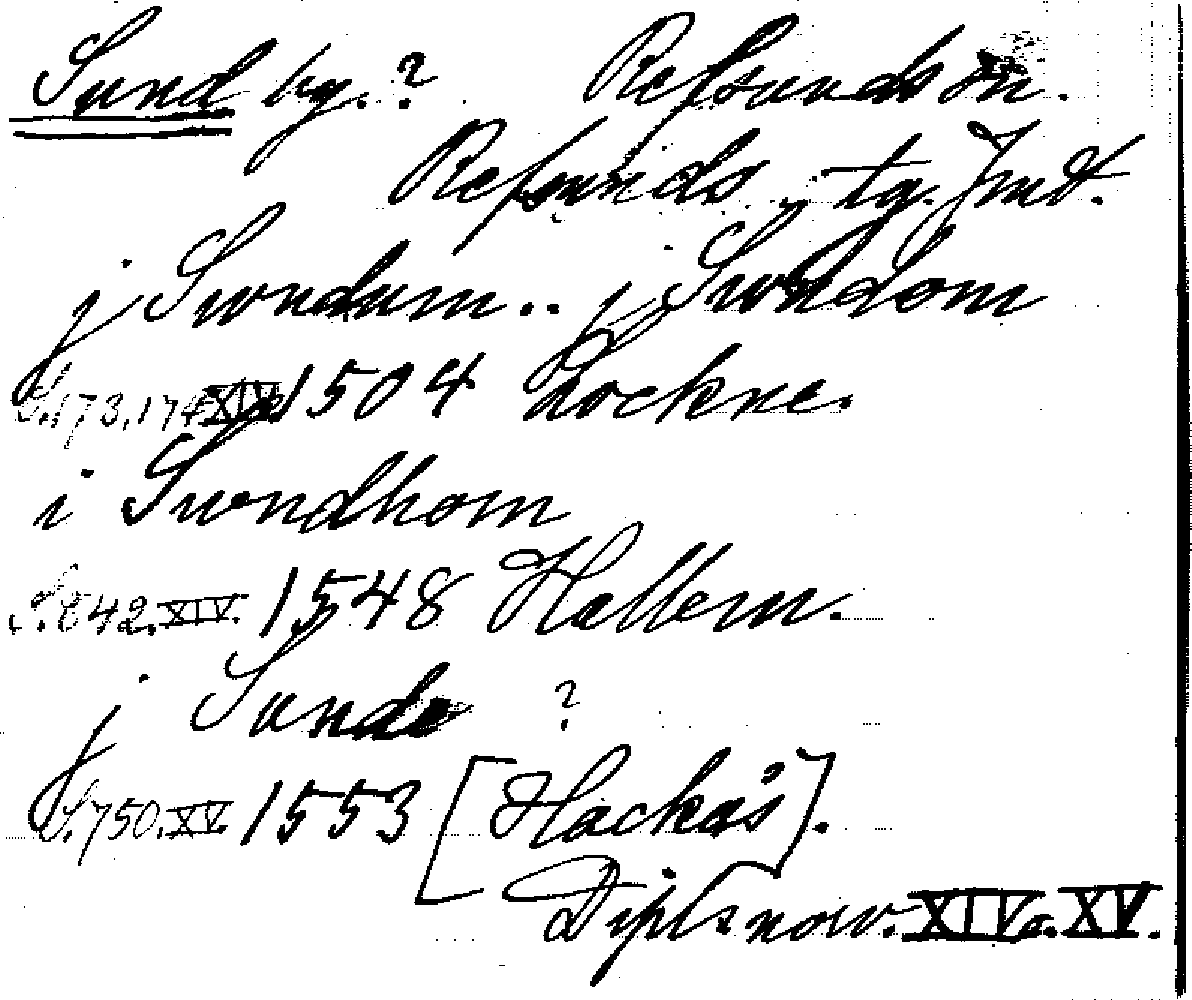 Sund by.? Refsunds sn.
Refsunds tg. Jmt.
j Swndum.. j Swndom
S.173,174 XIV 1504 Lockne.
i Swndhom
S.842.XIV. 1548 Hallem.
j Sunde ?
S.750.XV. 1553 [Hackås].
Dipl. norv. XIV o. XV.